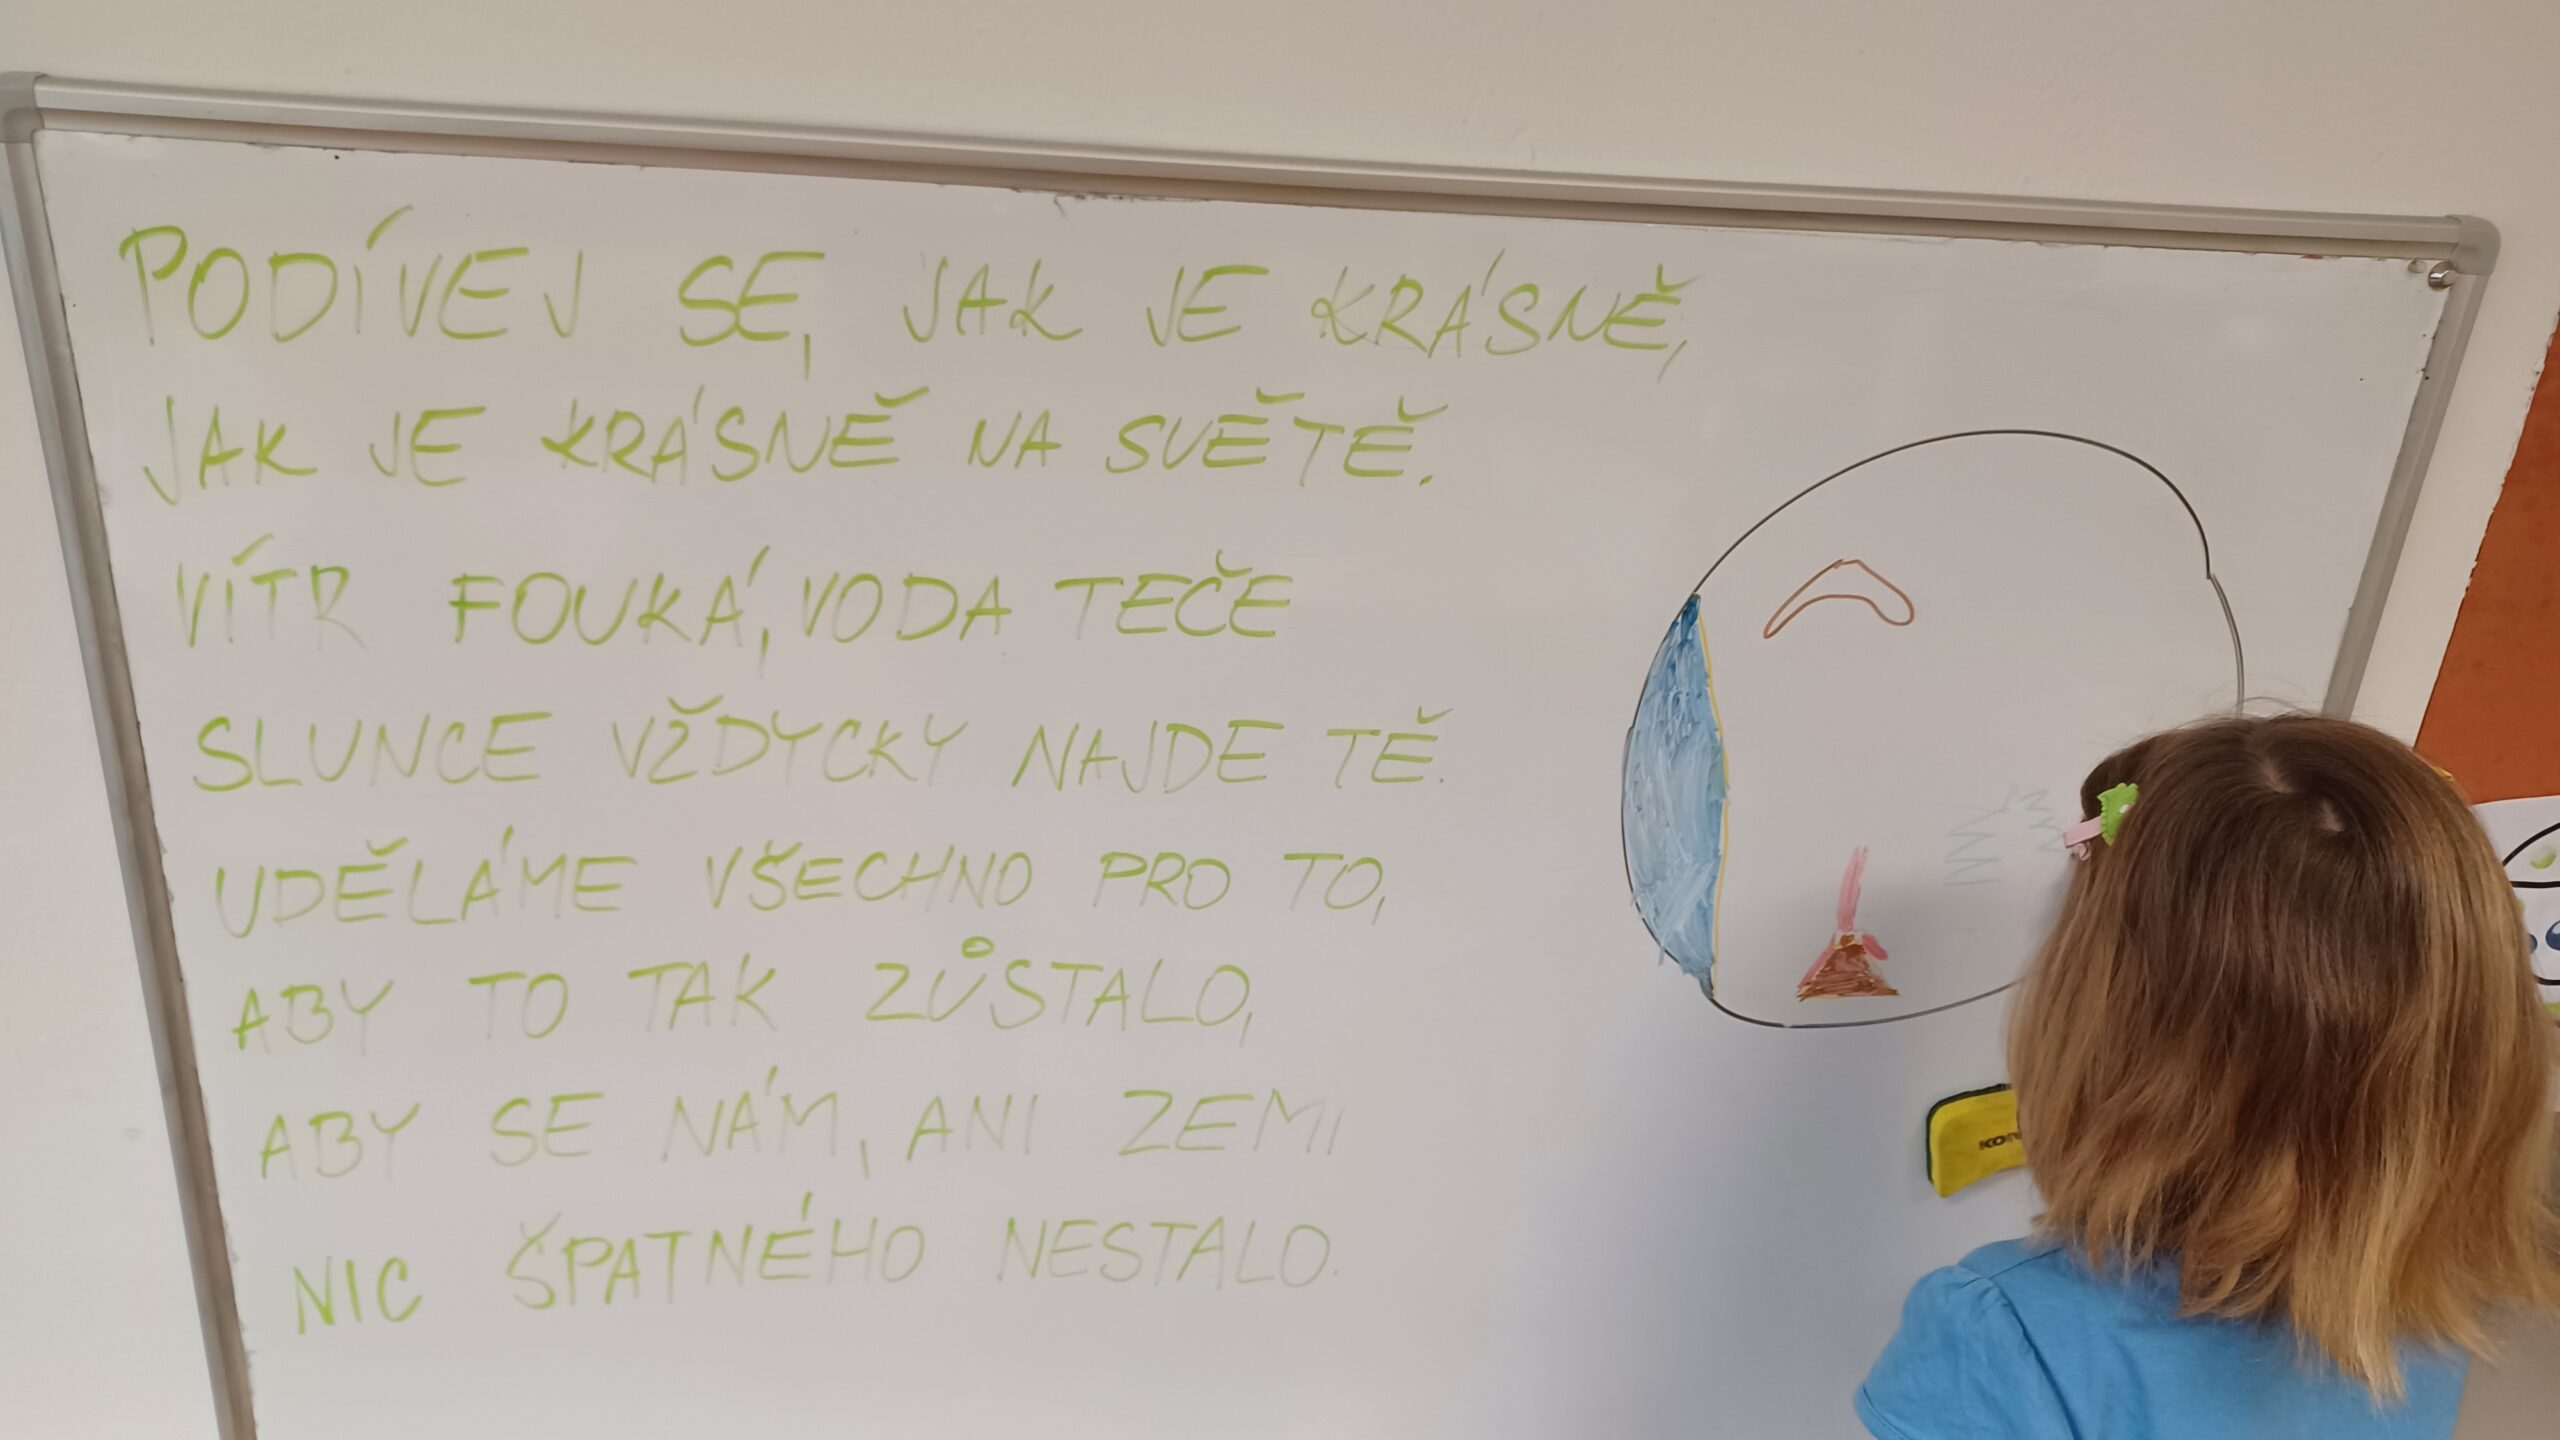 PODÍVEJ SE, JAK JE KRÁSNĚ,
JAK JE KRÁSNĚ NA SVĚTĚ.
VÍTR FOUKÁ, VODA TEČE
SLUNCE VŽDYCKY NAJDE TĚ.
UDĚLÁME VŠECHNO PRO TO,
ABY TO TAK ZŮSTALO,
ABY SE NÁM, ANI ZEMI
NIC ŠPATNÉHO NESTALO.